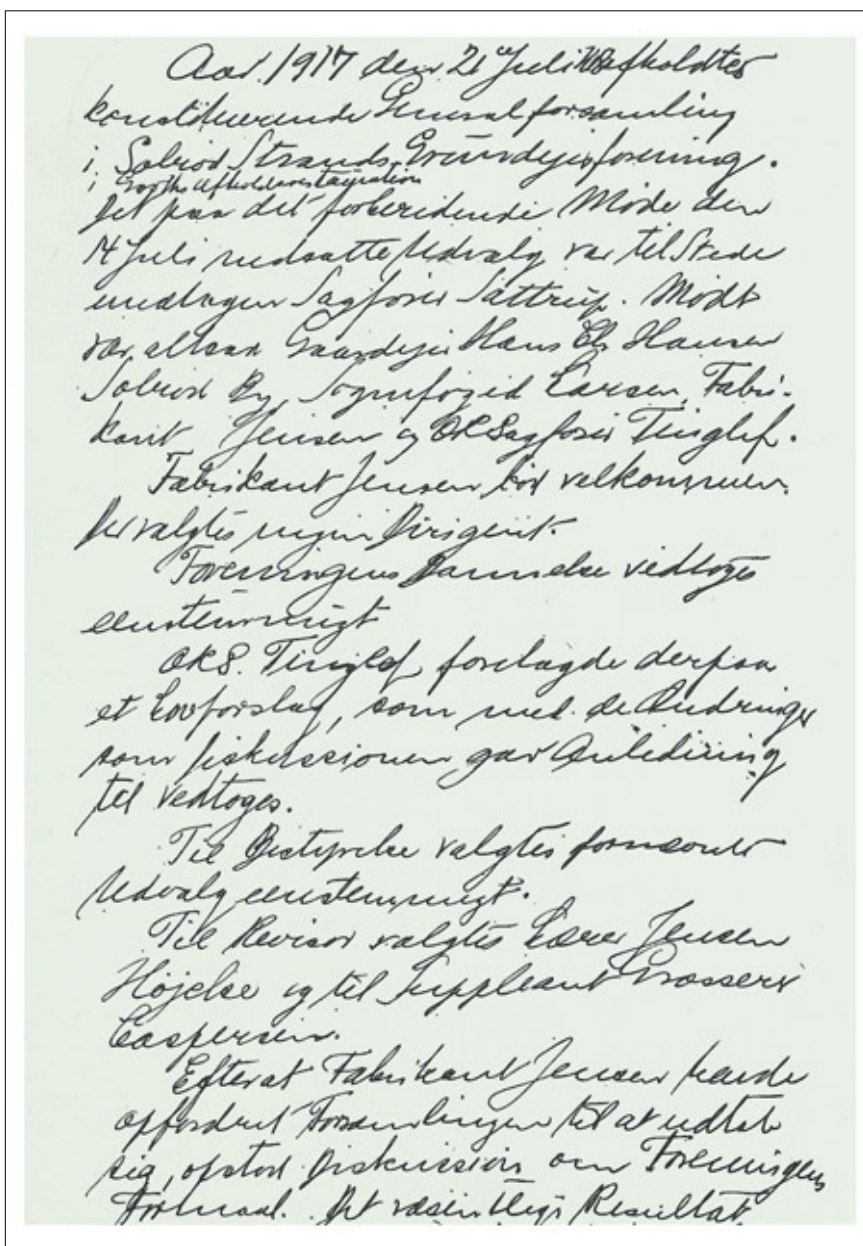 Aar 1917 den 21 Juli afholdtes
konstituerende Generalforsamling
i Solrød Strands Grundejerforening.
i Afholdsrestauration
Det paa det forberedende Møde den
14 Juli nedsatte Udvalg var til Stede
undtagen Sagfører Sattrup. Mødt
var altsaa Gaardejer Hans Chr. Hansen
Solrød By, Sognefoged Larsen, Fabri-
kant Jensen og ORSagfører Tinglef.
Fabrikant Jensen bød velkommen.
Der valgtes ingen Dirigent.
Foreningens Dannelse vedtoges
eenstemmigt
ORS. Tinglef forelagde derpaa
et Lovforslag, som med de Ændringer
som Diskussionen gav Anledning
til vedtoges.
Til Bestyrelse valgtes fornævnte
Udvalg eenstemmigt.
Til Revisor valgtes Lærer Jensen
Højelse og til Suppleant Grosserer
Caspersen.
Efter at Fabrikant Jensen havde
opfordret Forsamlingen til at udtale
sig, opstod Diskussion om Foreningens
Formaal. Det væsentligste Resultat